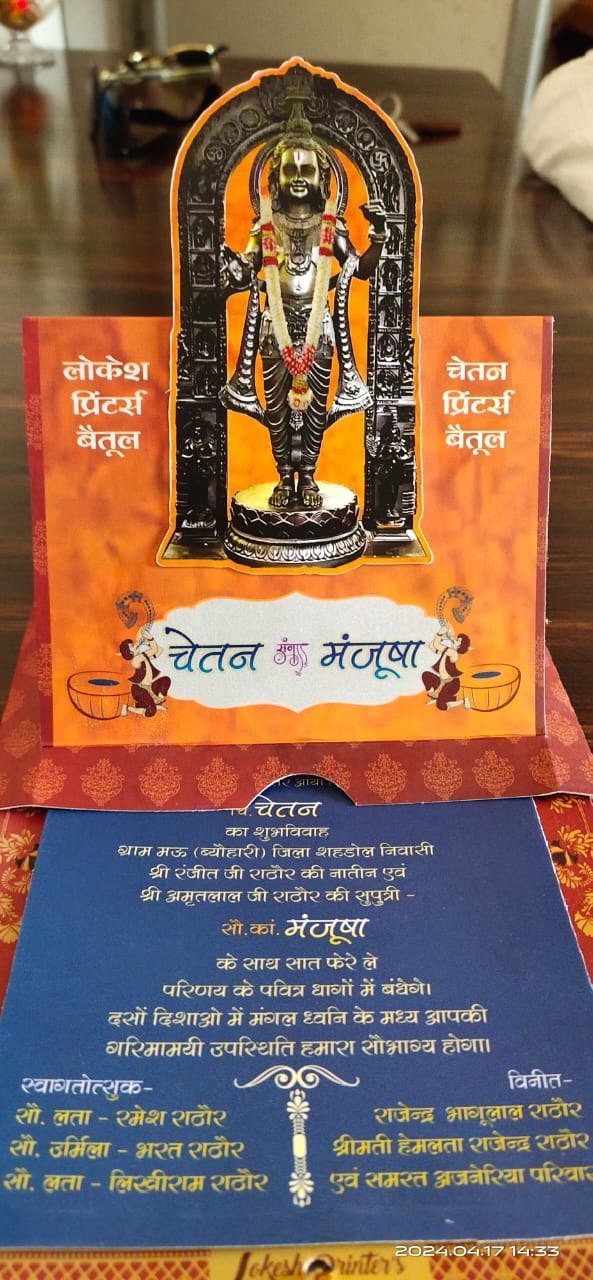 लोकेश
प्रिंटर्स
बैतूल
चेतन
प्रिंटर्स
बैतूल
चेतन संग मंजूषा
चि. चेतन
का शुभविवाह
ग्राम मऊ (ब्यौहारी) जिला शहडोल निवासी
श्री रंजीत जी राठौर की नातीन एवं
श्री अमृतलाल जी राठौर की सुपुत्री -
सौ.कां. मंजूषा
के साथ सात फेरे ले
परिणय के पवित्र धागों में बंधेगे।
दसों दिशाओ में मंगल ध्वनि के मध्य आपकी
गरिमामयी उपस्थिति हमारा सौभाग्य होगा।
स्वागतोत्सुक-
सौ. लता - रमेश राठौर
सौ. उर्मिला - भरत राठौर
सौ. लता - लिखीराम राठौर
विनीत-
राजेन्द्र भागूलाल राठौर
श्रीमती हेमलता राजेन्द्र राठौर
एवं समस्त अजनेरिया परिवार
Lokesh Printer's
2024.04.17 14:33